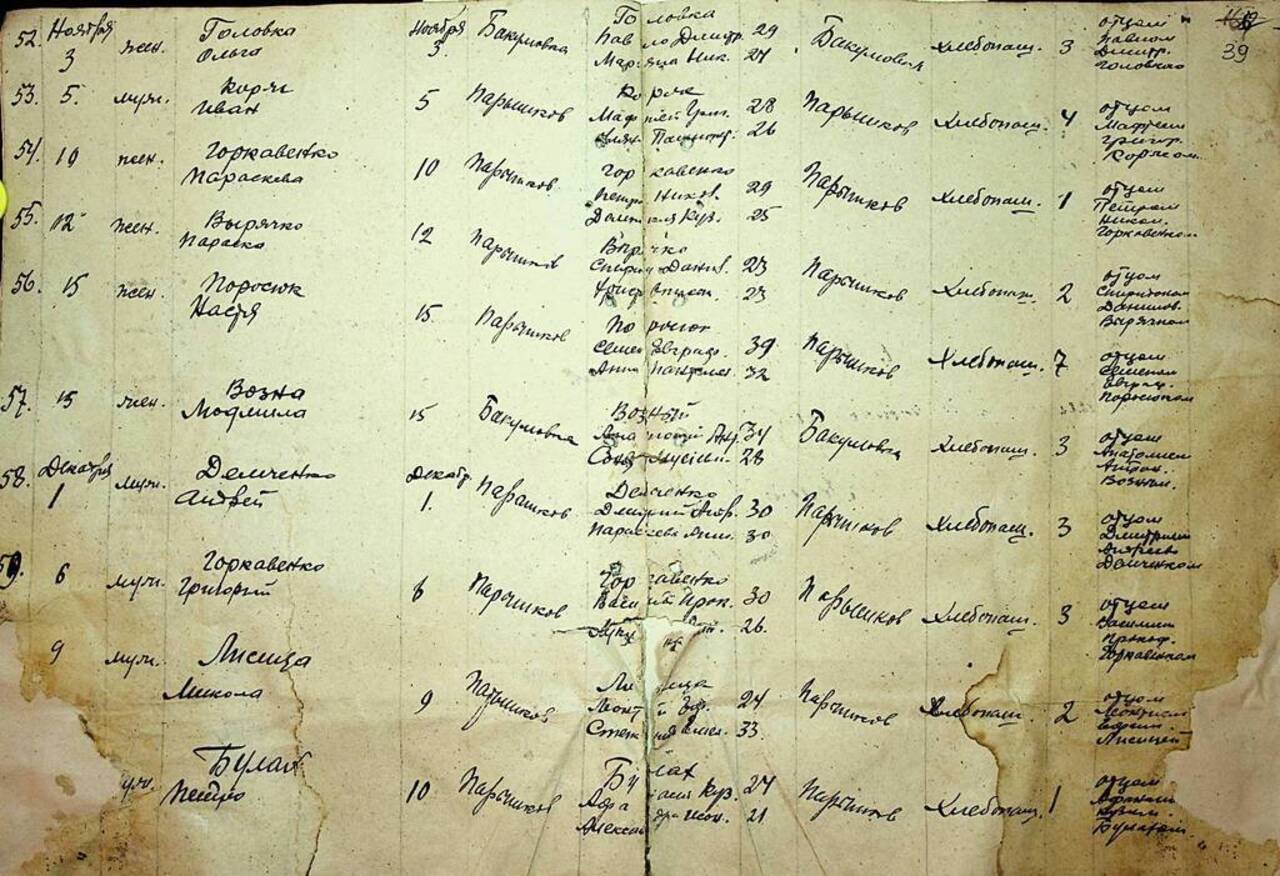 52. Ноября 3 жен. Головка Ольга Ноября 3. Бакумовка Головка Павло Дмитр. 29 Ник. 27 Бакумовка Хлебопаш. 3 отцом Павлом Дмитр. Головкою 39
53. 5. муж. Корж Иван 5 Парышков Корж Григ. 28 26 Парышков Хлебопаш. 4 отцом Григор. Коржом
54. 10 жен. Горкавенко Параскева 10 Парышков Горкавенко Петро Ников. 29 Куз. 25 Парышков Хлебопаш. 1 отцом Петром Никол. Горкавенком
55. 12 жен. Вырячко Параска 12 Парышков Вырячко Данил. 23 23 Парышков Хлебопаш. 2 отцом Спиридоном Данилов. Вырячком
56. 15 жен. Поросюк Настя 15. Парышков Поросюк Семен Евграф. 39 Анна Пантелем. 32 Парышков Хлебопаш. 7 отцом Семеном Евграф. Поросюком
57. 15 жен. Возна Людмила 15 Бакумовка Возный 34 28 Бакумовка Хлебопаш. 3 отцом Анатолием Возным.
58. Декабря 1 муж. Демченко Андрей Декабр. 1. Парашков Демченко Дмитрий Андр. 30 30 Парышков Хлебопаш. 3 отцом Дмитрием Андреев. Демченком
59. 6 муж. Горкавенко Григорий 6 Парышков Горкавенко Василий Прок. 30 26. Парышков Хлебопаш. 3 отцом Василием Прокоф. Горкавенком
9 муж. Лисица Микола 9 Парышков Лисица 24 33. Парышков Хлебопаш. 2 отцом Леонтием Лисицей
Булах Петро 10 Парышков Булах Куз. 27 21 Парышков Хлебопаш. 1 отцом Кузьм. Булахом.